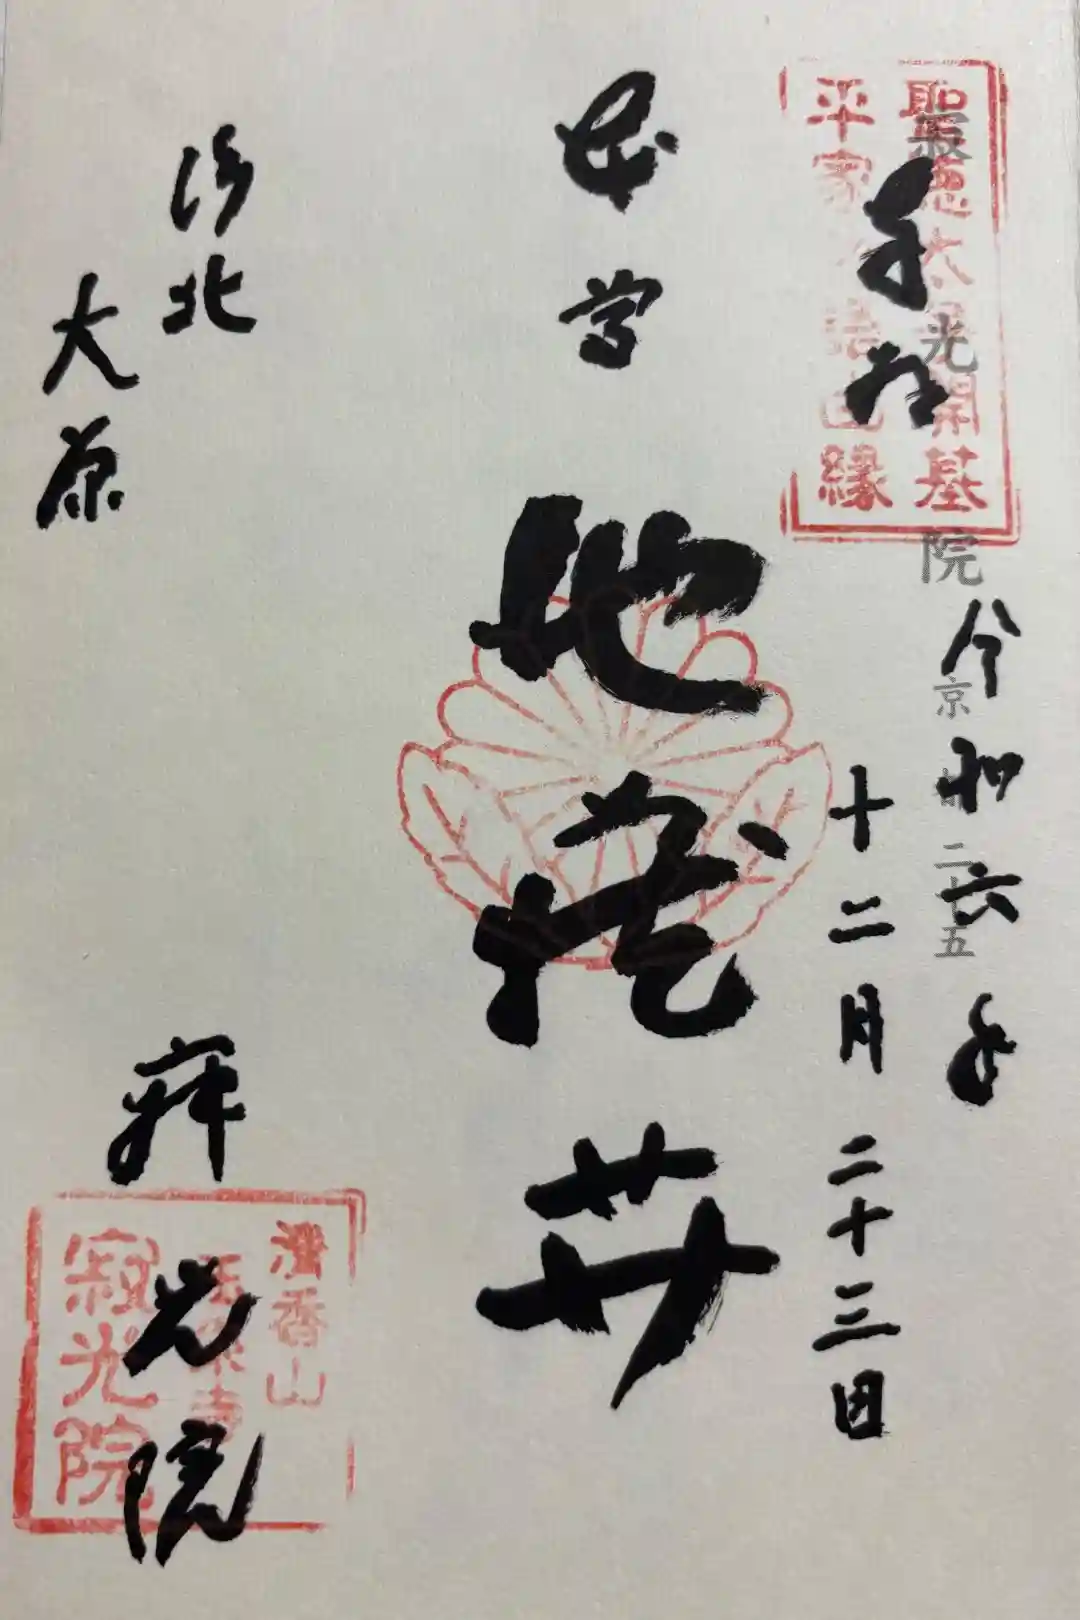 聖徳太子御開基
平家物語由縁
奉拝
寂光院
京都二十五
令和六年
十二月二十三日
本尊
地蔵𦬇
洛北
大原
寂光院
清香山
玉泉寺
寂光院